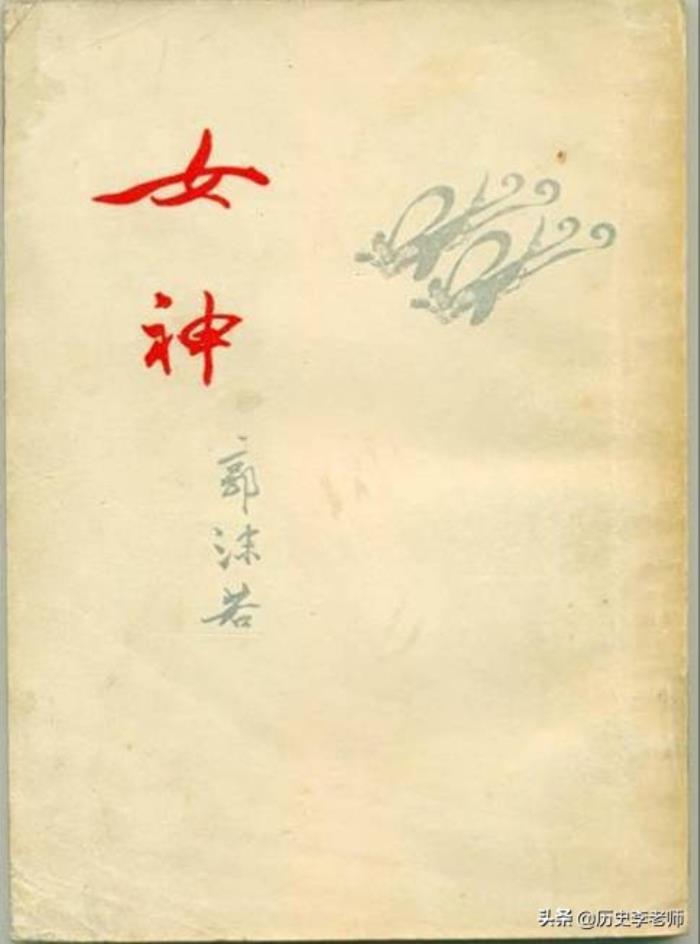 女神
郭沫若
头条 @历史李老师